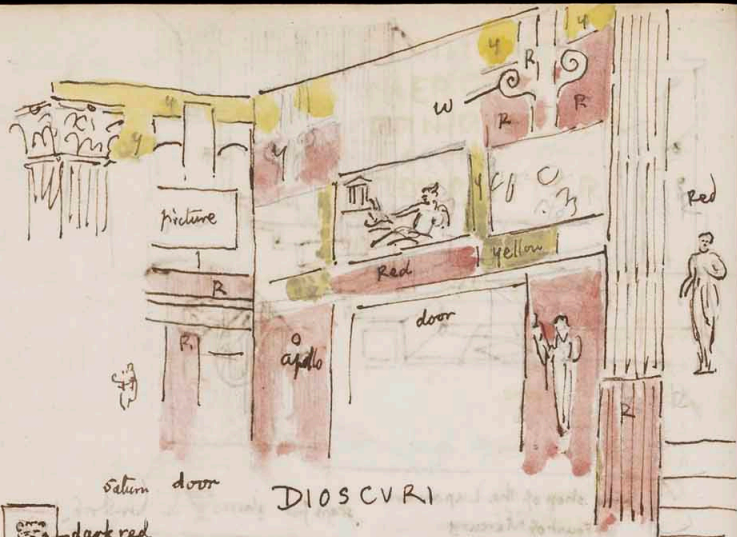 y
y
y
R
y
W
R
R
y
y
picture
Red
yellow
Red
R
R
door
apollo
R
saturn door
DIOSCVRI
dark red